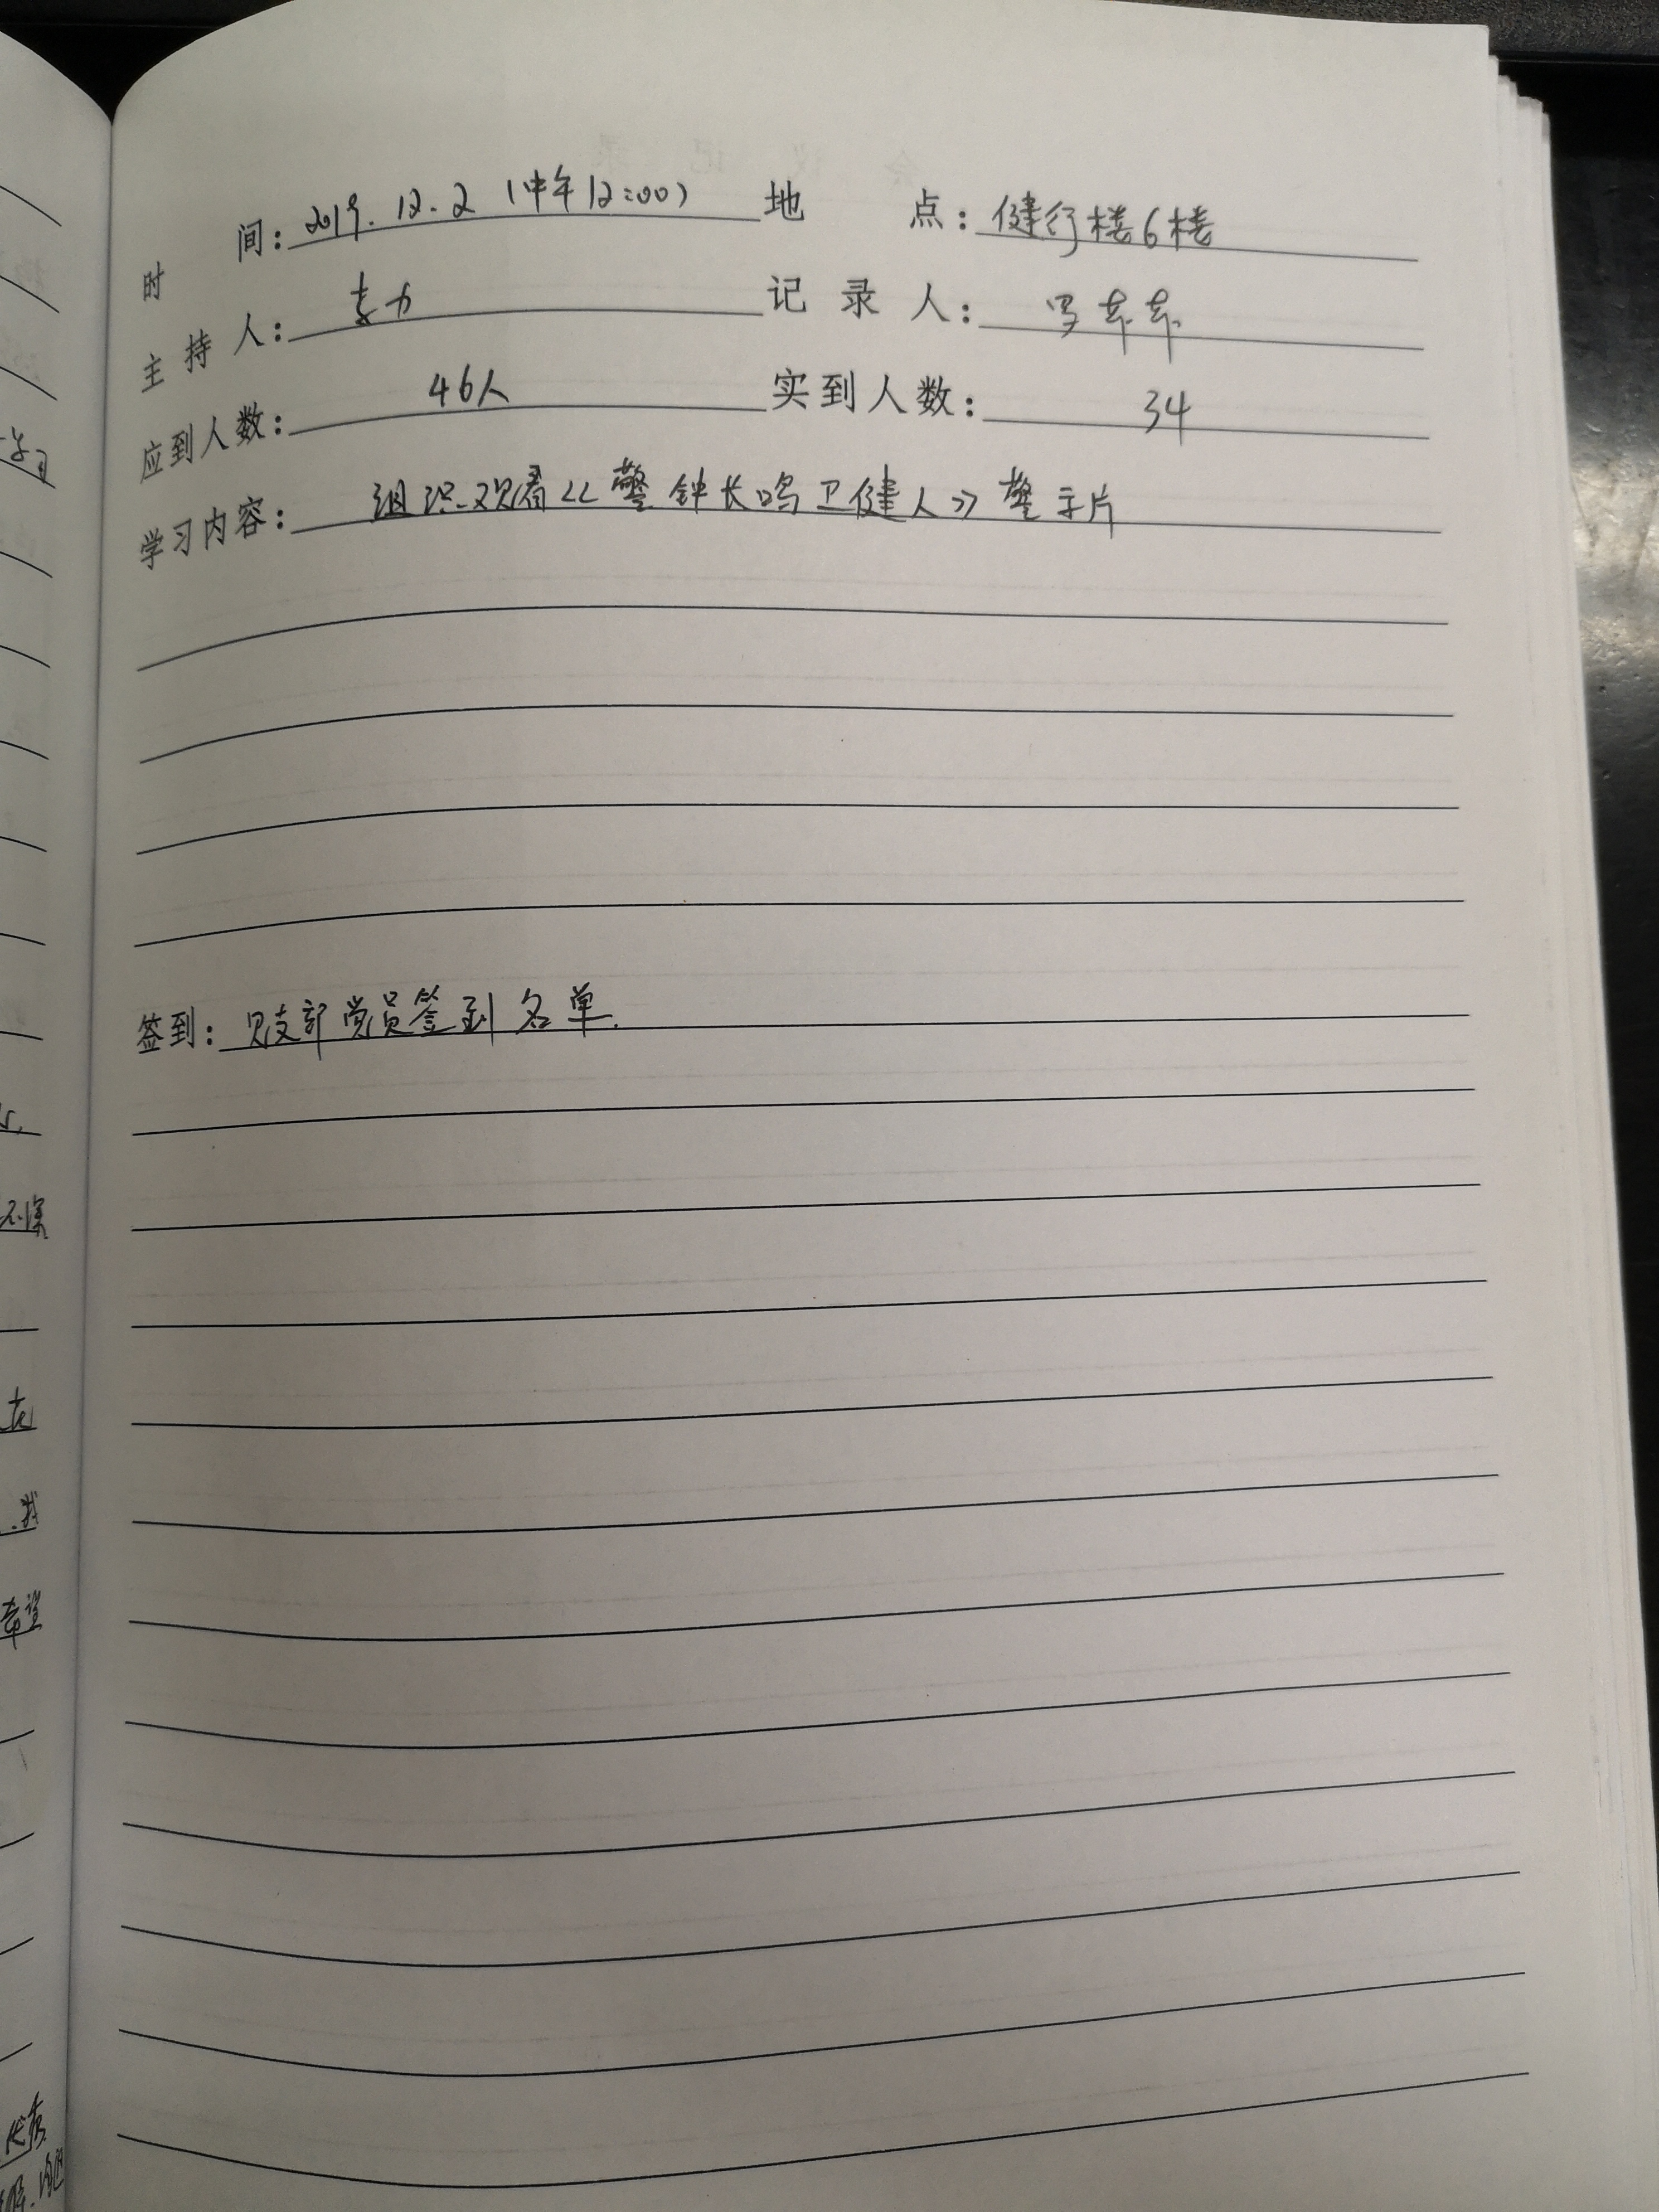 时间：2019.12.2（中午12:00） 地点：健行楼6楼
主持人：李力 记录人：
应到人数：46人 实到人数：34
学习内容：组织观看《警钟长鸣卫健人》警示片
签到：见支部党员签到名单.
学习
不深
在
.我
希望